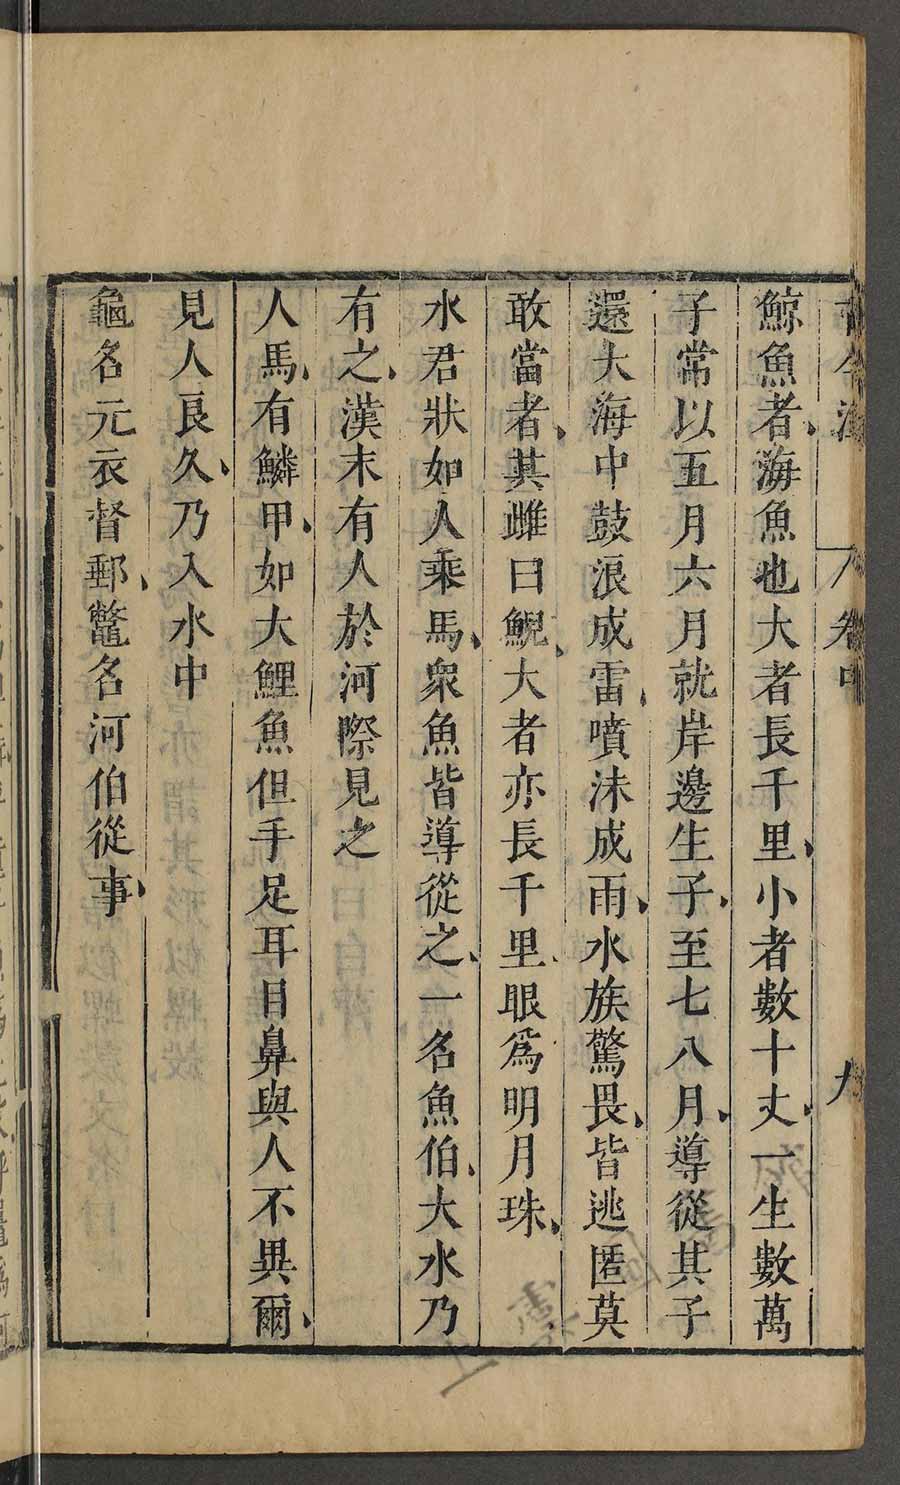 古今注 卷中 九
鯨魚者海魚也大者長千里小者數十丈一生數萬
子常以五月六月就岸邊生子至七八月導從其子
還大海中鼓浪成雷噴沫成雨水族驚畏皆逃匿莫
敢當者其雌曰鯢大者亦長千里眼爲明月珠
水君狀如人乘馬衆魚皆導從之一名魚伯大水乃
有之漢末有人於河際見之
人馬有鱗甲如大鯉魚但手足耳目鼻與人不異爾
見人良久乃入水中
龜名元衣督郵鼈名河伯從事